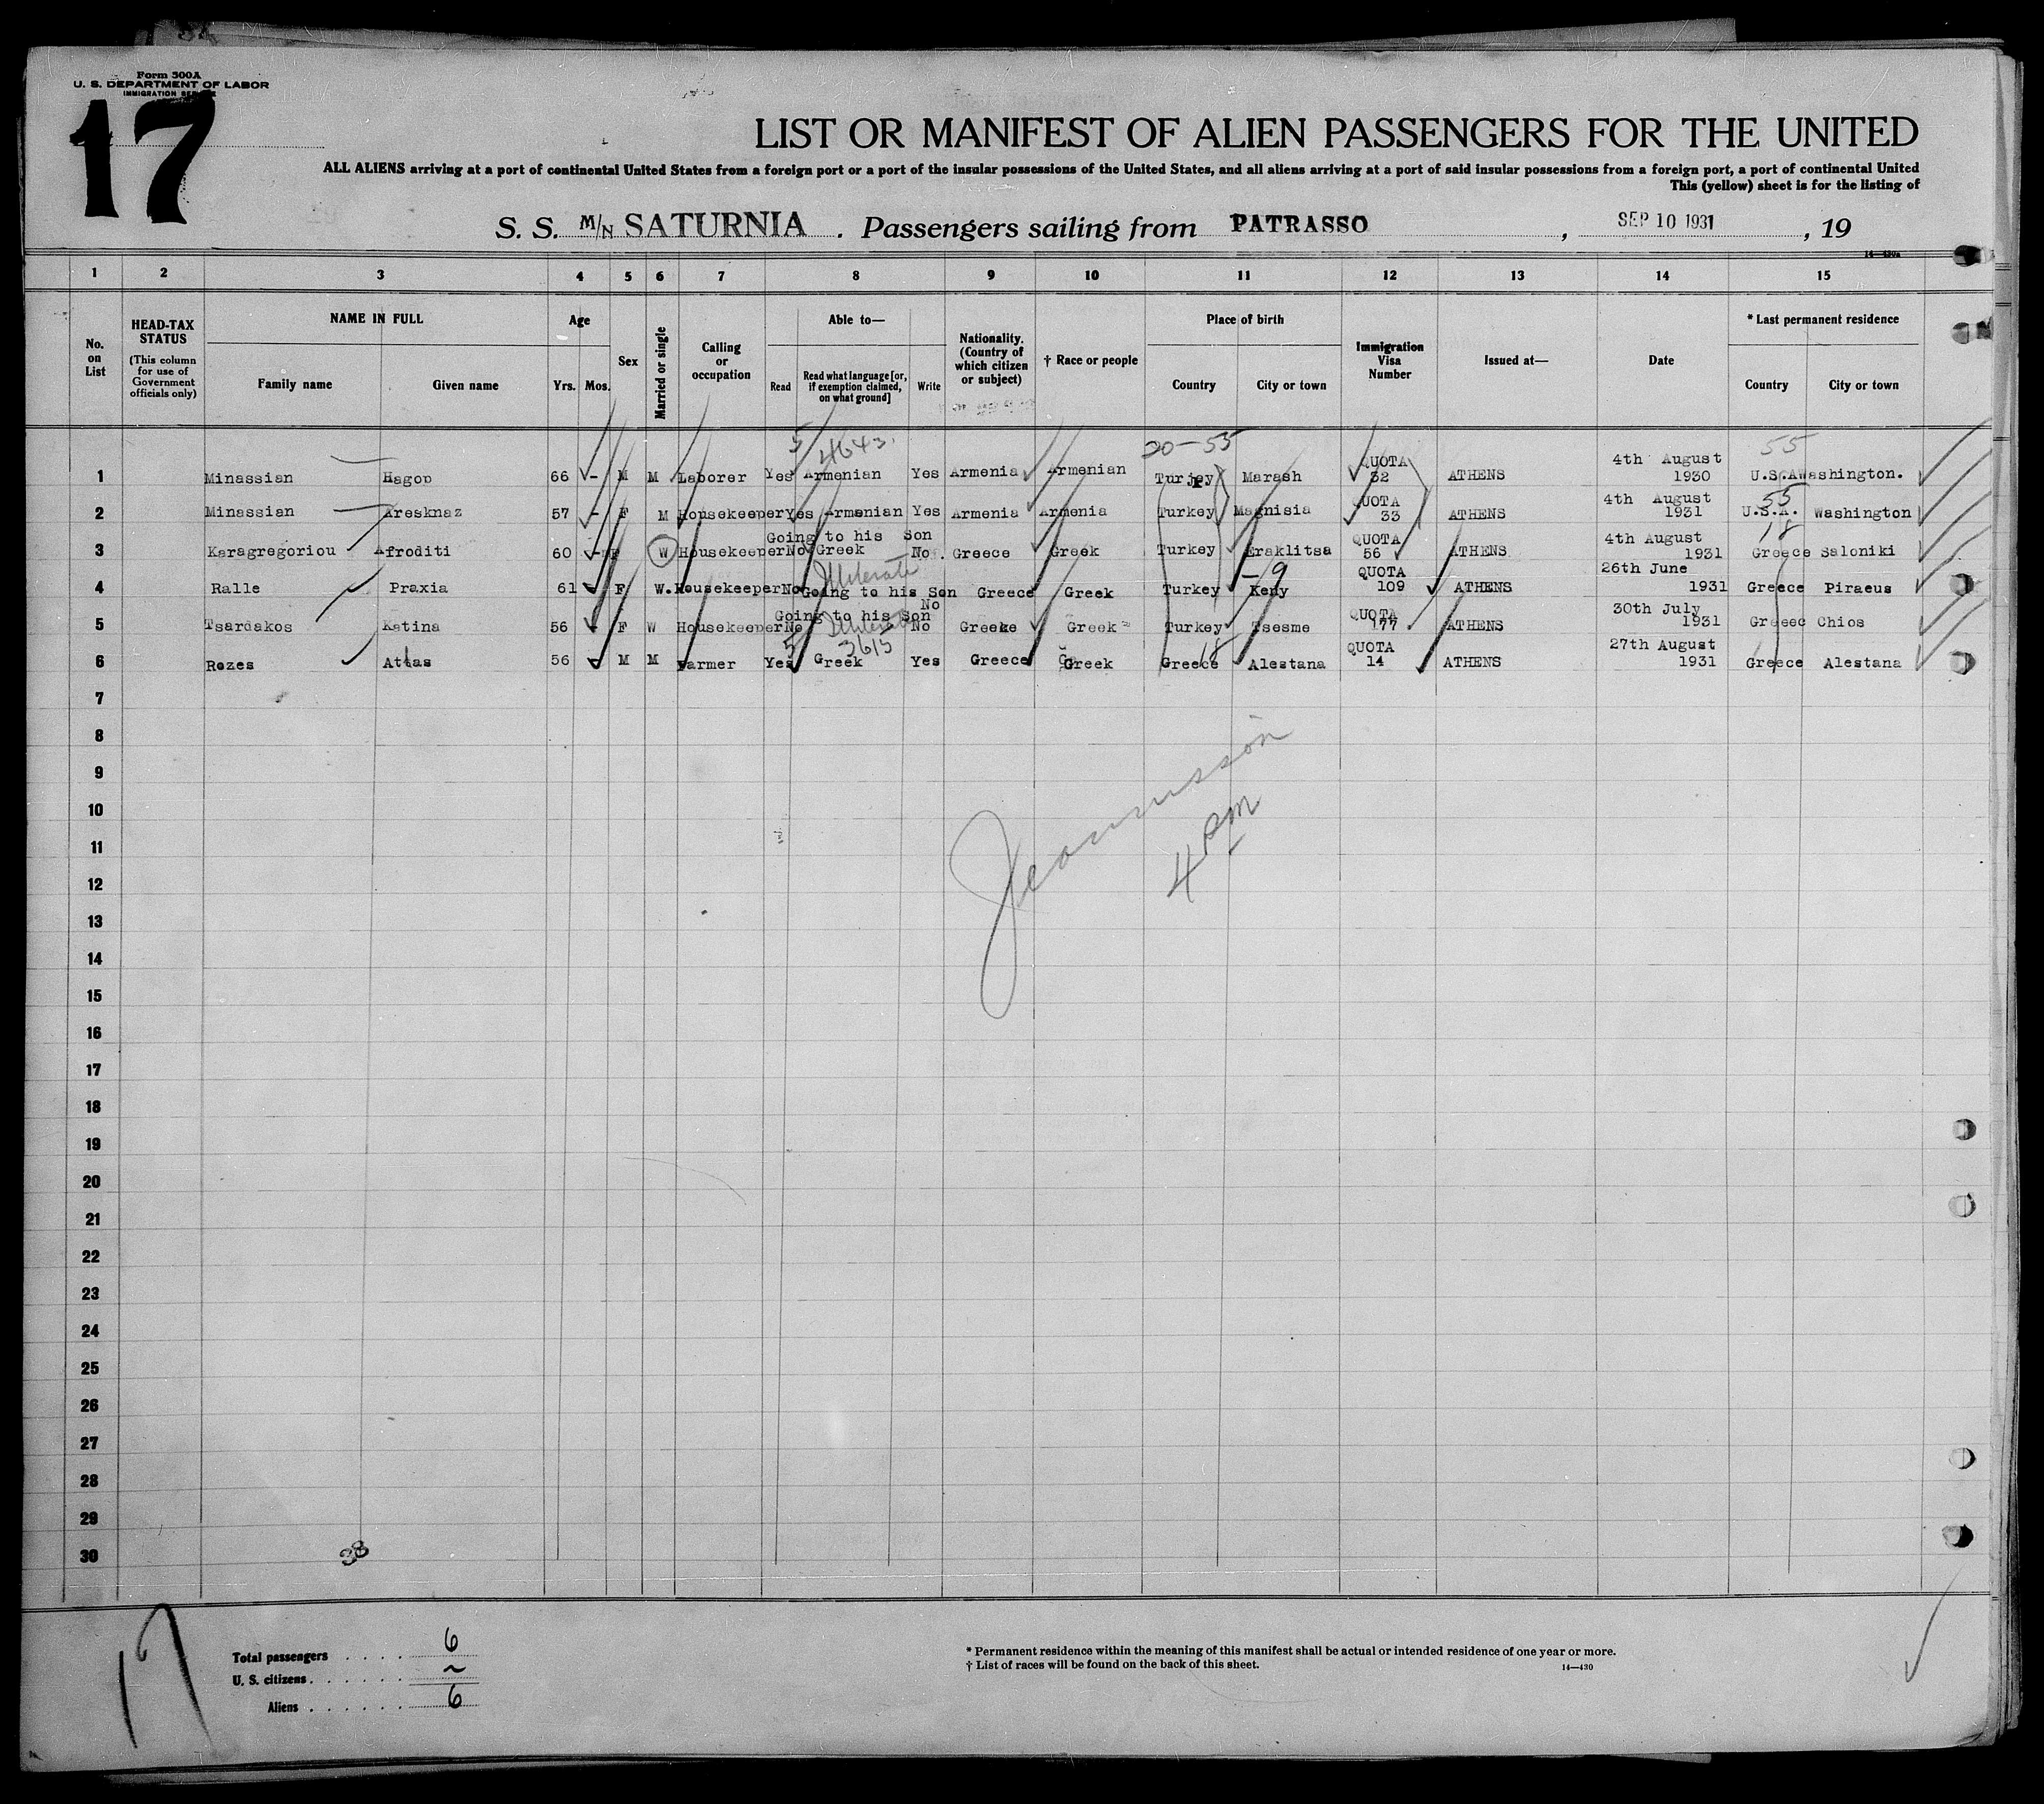 Form 500A
U. S. DEPARTMENT OF LABOR
IMMIGRATION SERVICE
17
LIST OR MANIFEST OF ALIEN PASSENGERS FOR THE UNITED
ALL ALIENS arriving at a port of continental United States from a foreign port or a port of the insular possessions of the United States, and all aliens arriving at a port of said insular possessions from a foreign port, a port of continental United
This (yellow) sheet is for the listing of
S. S. M/N SATURNIA . Passengers sailing from PATRASSO , SEP 10 1931 , 19
14—430a
1 2 3 4 5 6 7 8 9 10 11 12 13 14 15
No. on List
HEAD-TAX STATUS (This column for use of Government officials only)
NAME IN FULL Family name Given name
Age Yrs. Mos.
Sex
Married or single
Calling or occupation
Able to— Read Read what language [or, if exemption claimed, on what ground] Write
Nationality. (Country of which citizen or subject)
† Race or people
Place of birth Country City or town
Immigration Visa Number
Issued at—
Date
* Last permanent residence Country City or town
5 4643. 20-55 55
1 Minassian Hagop 66 - M M Laborer Yes Armenian Yes Armenia Armenian Turjey Marash QUOTA 32 ATHENS 4th August 1930 U.S.A Washington.
55
2 Minassian Aresknaz 57 - F M Housekeeper Yes Armenian Yes Armenia Armenia Turkey Magnisia QUOTA 33 ATHENS 4th August 1931 U.S.A. Washington
18
3 Karagregoriou Afroditi 60 - F W Housekeeper No Going to his Son Greek No. Greece Greek Turkey Eraklitsa QUOTA 56 ATHENS 4th August 1931 Greece Saloniki
Illiterate - 9
4 Ralle Praxia 61 F W. Housekeeper No Going to his Son No Greece Greek Turkey Keny QUOTA 109 ATHENS 26th June 1931 Greece Piraeus
5 Tsardakos Katina 56 - F W Housekeeper No Going to his Son Illiterate No Greeke Greek Turkey Tsesme QUOTA 177 ATHENS 30th July 1931 Greeec Chios
5 3615 18
6 Rozes Attas 56 - M M Farmer Yes Greek Yes Greece Greek Greece Alestana QUOTA 14 ATHENS 27th August 1931 Greece Alestana
7
8
9
10
11
4 pm
12
13
14
15
16
17
18
19
20
21
22
23
24
25
26
27
28
29
30
38
17
Total passengers . . . . 6
U. S. citizens . . . . . . ~
Aliens . . . . . . 6
* Permanent residence within the meaning of this manifest shall be actual or intended residence of one year or more.
† List of races will be found on the back of this sheet. 14—430